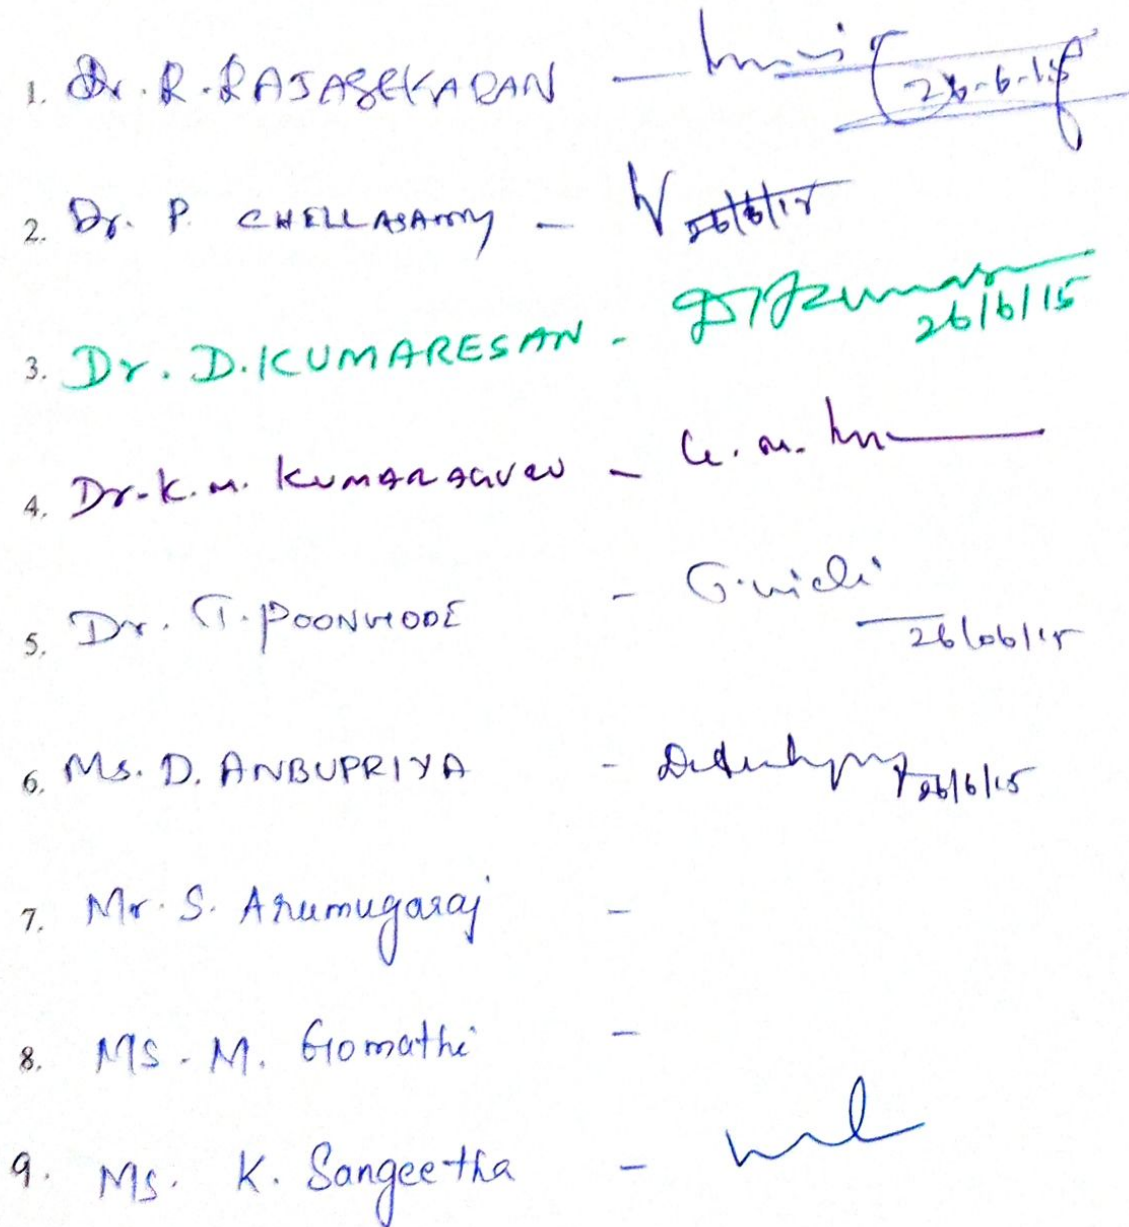 1. Dr. R. RAJASEKARAN - 26-6-15
2. Dr. P. CHELLASAMY - 26/6/15
3. Dr. D. KUMARESAN - 26/6/15
4. Dr. K. M. KUMARAGURU - K. M.
5. Dr. T. POONKODE - 26/06/15
6. Ms. D. ANBUPRIYA - 26/6/15
7. Mr. S. Arumugaraj -
8. MS. M. Gomathi -
9. Ms. K. Sangeetha -